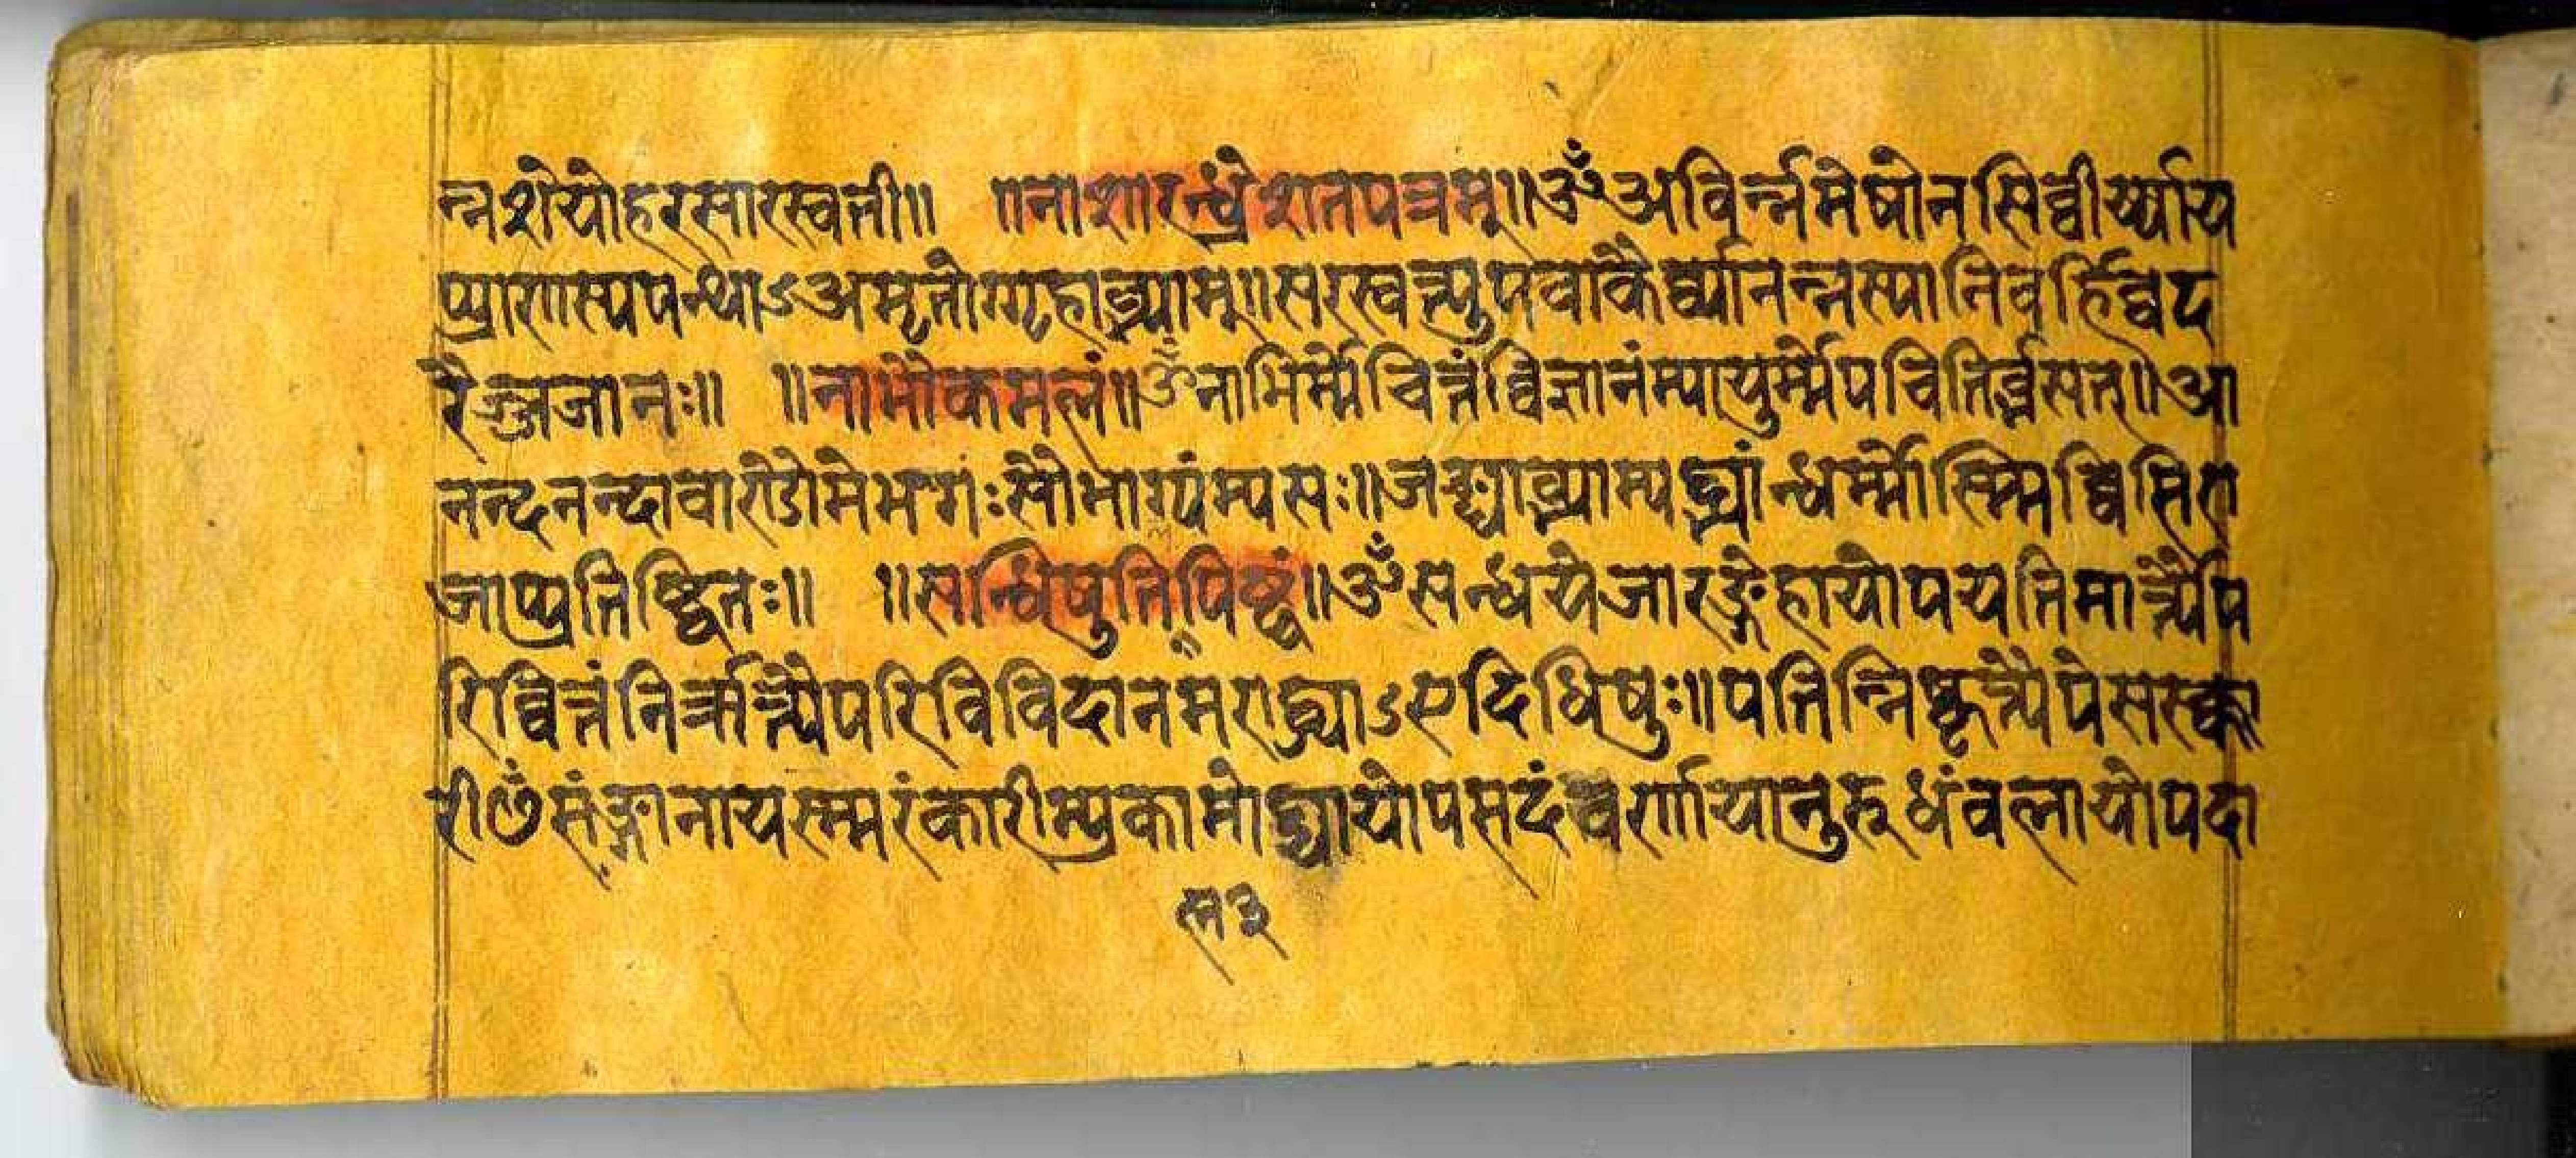 न्नशेयोहरसारस्वती॥ ॥नाशारन्ध्रेशतपत्रम्॥ॐअविर्न्नमेषोनसिव्वीर्य्याय
प्प्राणस्यपन्थाऽअमृतोग्गृहाब्भ्याम्॥सरस्वत्त्युपवाकैर्व्व्यानन्नस्यानिबर्हिब्बद
रैर्ज्जजानः॥ ॥नाभौकमलं॥ॐनाभिर्म्मेचित्तंव्विज्ञानंम्पायुर्म्मेपचितिर्ब्भसत्॥आ
नन्दनन्दावाण्डौमेभगःसौभाग्यंम्पसः॥जङ्घाब्भ्याम्पद्भ्यांन्धर्म्मोस्म्मिव्विशिरा
जाप्प्रतिष्ठितः॥ ॥सन्धिषुतिपिष्टं॥ॐसन्धयेजारङ्गेहायोपपतिमार्त्त्यैप
रिव्वित्तंनिर्ऋत्यैपरिविविदानमराद्ध्याऽएदिधिषुः॥पतिन्निष्कृत्त्यैपेसस्क्का
रीᳪसंज्ञानायस्म्मरंकारीम्प्रकामोद्यायोपसदंव्वर्णायानुरूधंवलायोपदा